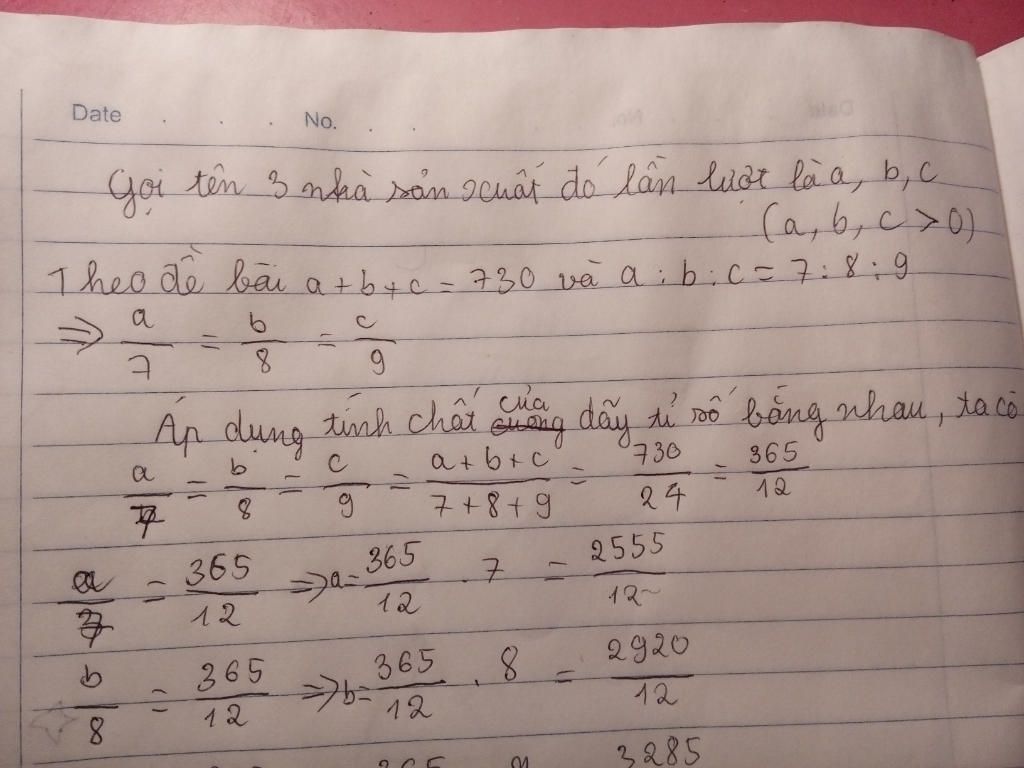 Date . . . No. . .
Gọi tên 3 nhà sản xuất đó lần lượt là a, b, c
(a, b, c > 0)
Theo đề bài a + b + c = 730 và a : b : c = 7 : 8 : 9
=> a/7 = b/8 = c/9
Áp dụng tính chất của dãy tỉ số bằng nhau, ta có
a/7 = b/8 = c/9 = a + b + c / 7 + 8 + 9 = 730/24 = 365/12
a/7 = 365/12 => a = 365/12 . 7 = 2555/12
b/8 = 365/12 => b = 365/12 . 8 = 2920/12
365 3285